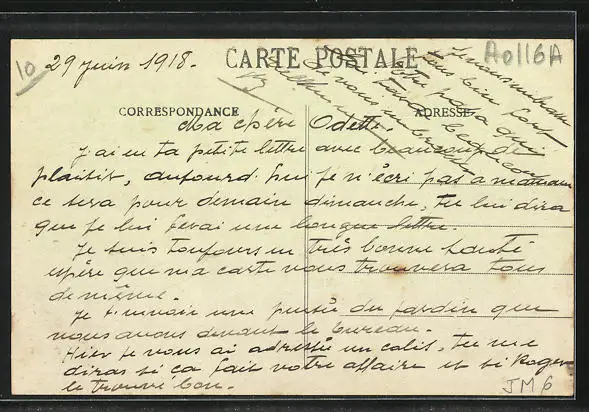 10
29 juin 1918.
CARTE POSTALE
A0116A
CORRESPONDANCE
ADRESSE
Ma chère Odette,
J'ai eu ta petite lettre avec beaucoup de
plaisir, aujourd'hui je n'écri pas a maman
ce sera pour demain dimanche, tu lui dira
que je lui ferai une longue lettre.
Je suis toujours en très bonne santé
espère que ma carte vous trouvera tous
de même.
Je t'envoie une pensée du jardin que
nous avons devant le bureau.
Hier je vous ai adressé un colis, tu me
diras si ça fait votre affaire et si Roger
le trouve bon.
Je vous embrasse
tous bien fort
Ton papa qui
JM6